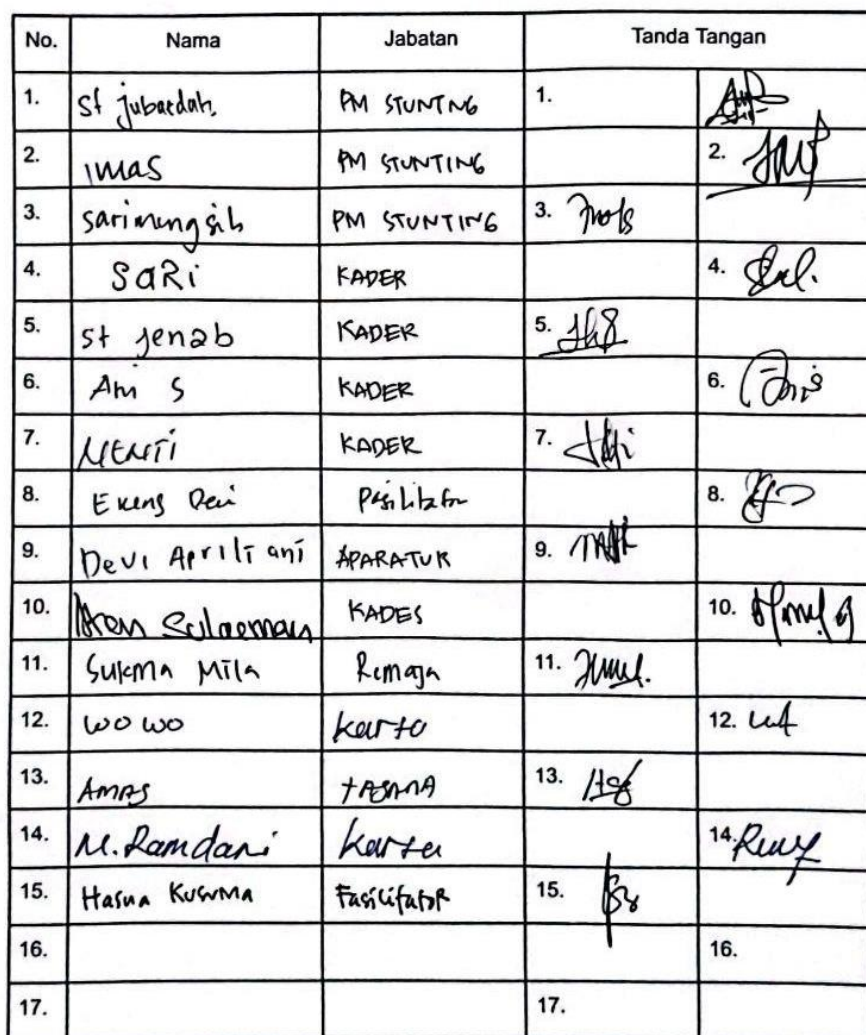 No. Nama Jabatan Tanda Tangan
1. St jubaedah. PM STUNTNG 1.
2. imas PM STUNTING 2.
3. Sarimungsih PM STUNTING 3.
4. SaRi KADER 4.
5. st jenab KADER 5.
6. Ani S KADER 6.
7. KADER 7.
8. Dewi 8.
9. Devi Apriliani APARATUR 9.
10. Sulaeman KADES 10.
11. Sukma Mila Remaja 11.
12. wo wo karta 12.
13. AMAS 13.
14. M. Ramdani karta 14.
15. Hasna Kusuma Fasilitator 15.
16. 16.
17. 17.